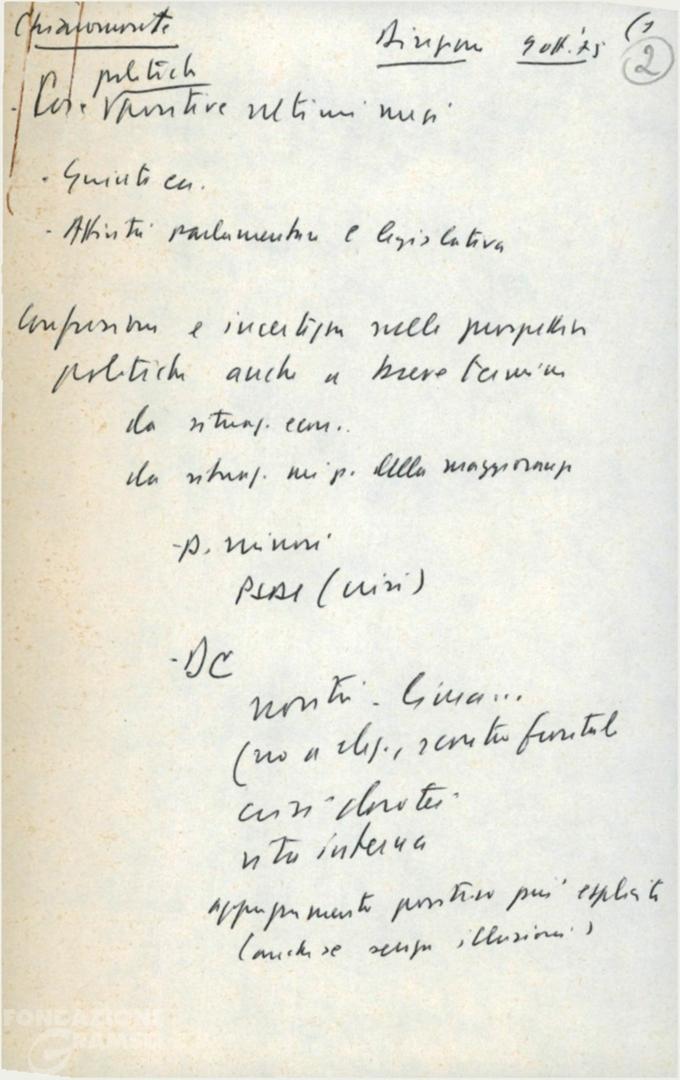 Chiaromonte Direzione 9 ott. '75 (1
2
politiche
- Cose positive ultimi mesi
- Giunte ecc.
- Attività parlamentare e legislativa
Confusione e incertezza nelle prospettive
politiche anche a breve termine
da situaz. econ..
da situaz. della maggioranza
- p. minori
PSDI (crisi)
- DC
novità - Lima...
(no a elez., scontro frontale
crisi dorotei
vita interna
apprezzamento positivo più esplicito
(anche se senza illusioni)
FONDAZIONE
GRAMSCI